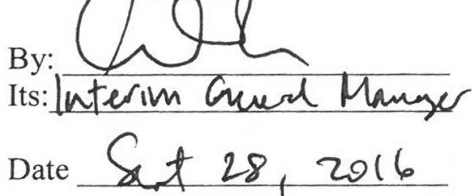 By:
Its: Interim General Manager
Date Sept 28, 2016